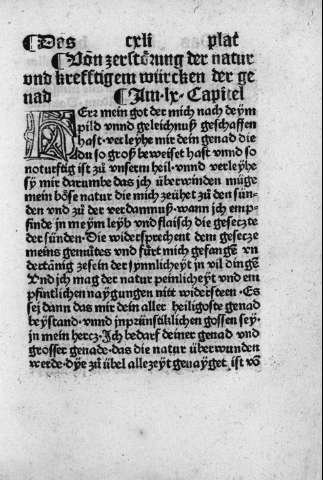 ¶Das cxli plat
¶Võn zerstörung der natur
vnd krefftigem würcken der ge
nad ¶Am·lx·Capitel
HErr mein got der mich nach deym
pild vnnd geleichnuß geschaffen
hast·verleyhe mir dein genad die
du so groß beweiset hast vnnd so
noturftig ist zů vnserm heil·vnnd verleyhe
sy mir darumbe das ich überwinden müge
mein böse natur die mich zeühet zů den sün-
den vnd zů der verdamnuß·wann ich emp-
finde in meym leyb vnd flaisch die gesetzte
der sünden·Die widersprechent dem gesetze
meins gemütes vnd fürt mich gefangẽ vn
dertånig zesein der synnlicheyt in vil dingen
Vnd ich mag der natur peinlicheyt vnd em
pfintlichen naygungen nitt widersteen·Es
sei dann das mir dein aller heiligoste genad
beystand·vnnd inprünstiklichen gossen sey·
in mein hertz·Ich bedarf deiner genad vnd
grosser genade·das die natur überwunden
werde·dye zů übel allezeyt genayget ist võ